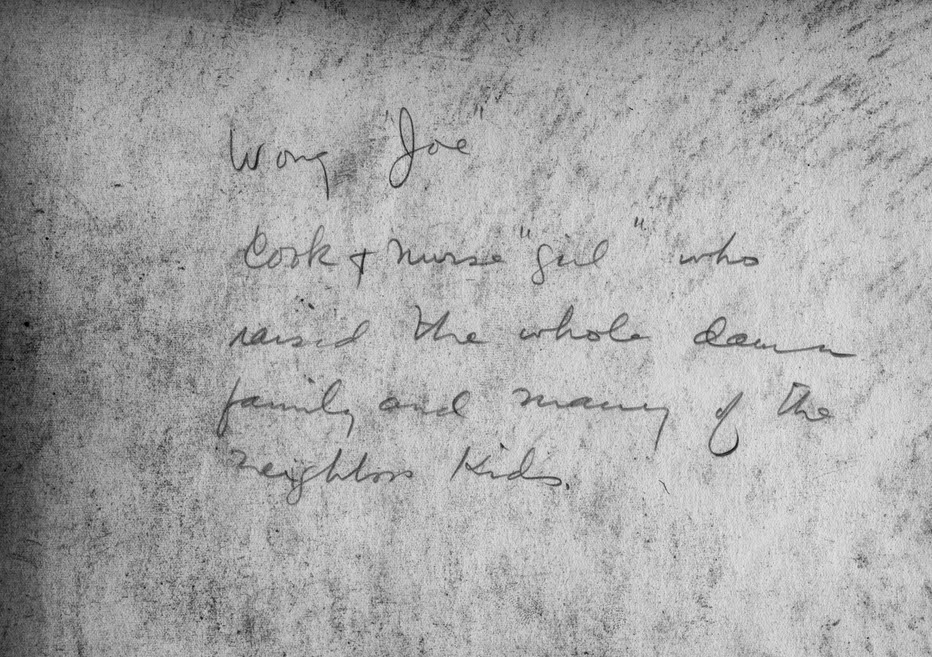 Wong "Joe"
Cook + Nurse "girl" who
raised the whole damn
family and many of the
neighbors Kids.